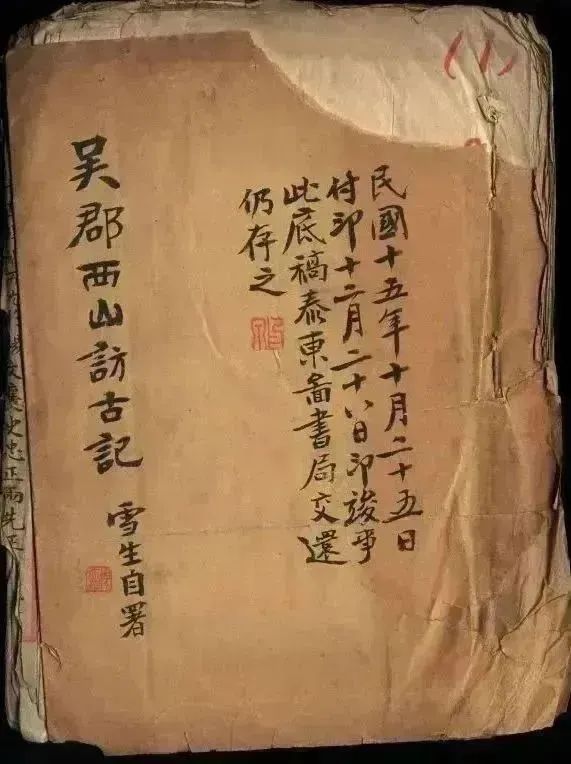 (1)
民國十五年十月二十五日
付印十二月二十八日印竣事
此底稿泰東圖書局交還
仍存之
吳郡西山訪古記
雪生自署